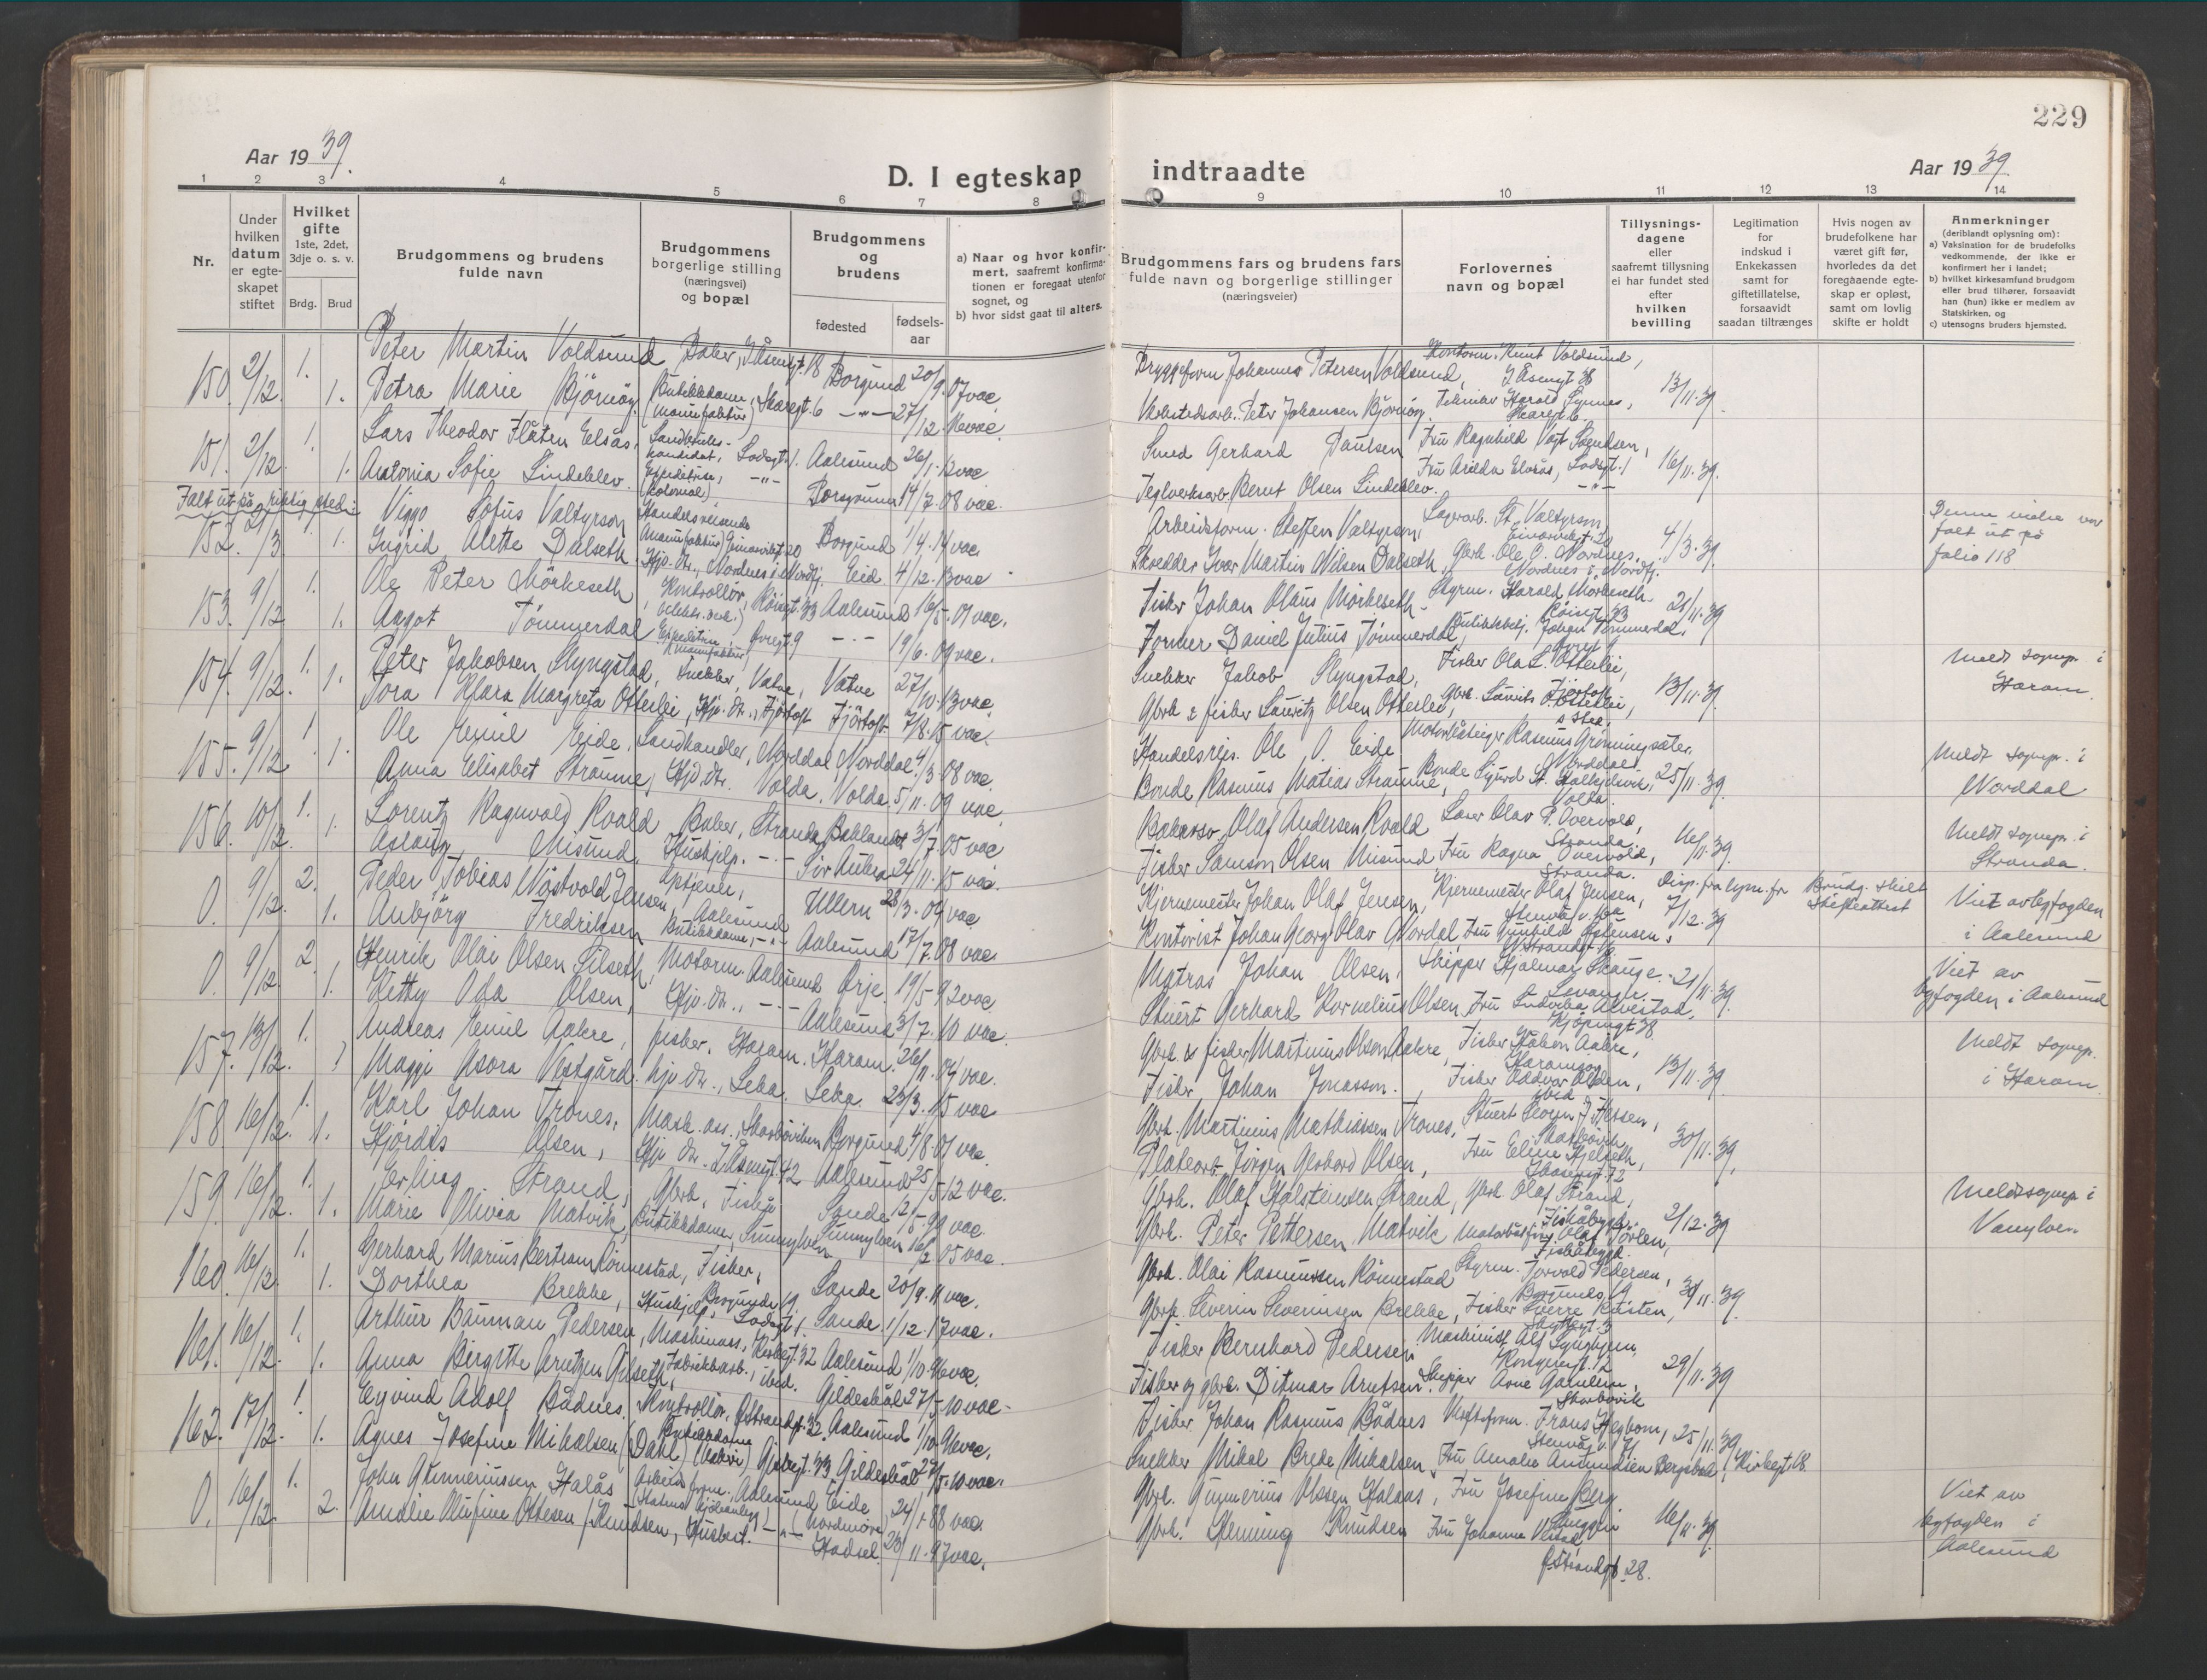 229
Aar 1939.
D. I egteskap
indtraadte
Aar 1939
1 2 3 4 5 6 7 8
9 10 11 12 13 14
Nr.
Under hvilken datum er egteskapet stiftet
Hvilket gifte
1ste, 2det, 3dje o. s. v.
Brdg.
Brud
Brudgommens og brudens fulde navn
Brudgommens borgerlige stilling (næringsvei) og bopæl
Brudgommens og brudens
fødested
fødselsaar
a) Naar og hvor konfirmert, saafremt konfirmationen er foregaat utenfor sognet, og
b) hvor sidst gaat til alters.
Brudgommens fars og brudens fars fulde navn og borgerlige stillinger (næringsveier)
Forlovernes navn og bopæl
Tillysningsdagene eller saafremt tillysning ei har fundet sted efter hvilken bevilling
Legitimation for indskud i Enkekassen samt for giftetillatelse, forsaavidt saadan tiltrænges
Hvis nogen av brudefolkene har været gift før, hvorledes da det foregaaende egteskap er opløst, samt om lovlig skifte er holdt
Anmerkninger
(deriblandt oplysning om):
a) Vaksination for de brudefolks vedkommende, der ikke er konfirmert her i landet;
b) hvilket kirkesamfund brudgom eller brud tilhører, forsaavidt han (hun) ikke er medlem av Statskirken, og
c) utensogns bruders hjemsted.
150. 2/12. 1. Peter Martin Voldsund Baker, J. Åsengt. 18 Borgund 20/9.07 vac.
1. Petra Marie Bjørnøy Butikkdame, (manufaktur) Skaregt. 6 -"- 27/12.16 vac.
Bryggeform Johannes Petersen Voldsund, Kontorm. Knut Voldsund, J. Åsengt 38
Verkstedsarb. Peter Johansen Bjørnøy. Tekniker Harald Synnes, Skaregt 6. 13/11.39.
151. 2/12. 1. Lars Theodor Flåten Elsås, Landbrukskandidat, Lodsgt. 1. Aalesund 26/1.12 vac
1. Antonia Sofie Lindeblev. Ekspeditrise, (kolonial) -"- Porsgrunn 14/7.08 vac.
Smed Gerhard Paulsen Fru Ragnhild Vågt Svendsen,
Teglverksarb. Bernt Olsen Lindeblev. Fru Arilda Elsås, Lodsgt. 1 16/11.39.
Falt ut på riktig sted:
152. 1. Viggo Sofus Valtyrson Handelsreisende (manufaktur) Borgund 1/4.14 vac.
1. Ingrid Alette Dalseth Hjv. dtr., Nordnes i Nordfj. Eid 4/12.13 vac
Arbeidsform. Steffen Valtyrson Lagerarb. St. Valtyrson
Skredder Ivar Martin Nilsen Dalseth, Gbrk. Ole O. Nordnes, Nordnes i Nordfj. 4/3.39.
Denne vielse var falt ut på folio 118
153. 9/12 1. Ole Peter Mørkeseth Kontrollør, Røisgt. 33 Aalesund 16/5.07 vac.
1. Aagot Tømmerdal Ekspeditrise, (manufaktur) Øvregt 9 -"- 19/6.09 vac.
Fisker Johan Olaus Mørkeseth Styrm. Harald Mørkeseth Røisgt 33 21/11.39
Former Daniel Julius Tømmerdal, Butikkbetj. Johan Tømmerdal,
154. 9/12. 1. Peter Jakobsen Slyngstad, Snekker, Vatne, Vatne 27/10.13 vac.
1. Tora Klara Margreta Otterlei, Hjv. dtr., Fjørtoft Fjørtoft 7/8.15 vac.
Snekker Jakob Slyngstad, Fisker Ola L. Otterlei, Fjørtoft
Gbrk & fisker Lauritz Olsen Otterlei, Gbrk. Laurits O. Otterlei, 13/11.39.
Meldt sognepr. i Haram.
155. 9/12. 1. Ole Emil Eide, Landhandler, Norddal, Norddal 4/3.08 vac.
1. Anna Elisabet Straume, Hjv. dtr. Volda, Volda 5/11.09 vac.
Handelsrejs. Ole O. Eide Motorbåteier Rasmus Grønningsæter, Norddal
Bonde Rasmus Matias Straume, Bonde Sigurd St. Folkestadvik, Volda. 25/11.39.
Meldt sognepr. i Norddal
156. 10/12. 1. Lorentz Ragnvald Roald Baker, Stranda, Baklandet 3/7.05 vac
1. Aslaug Misund. Hushjelp. -"- Sør Aukra 24/11.15 vac.
Bakersv. Olaf Andersen Roald Lærer Olav P. Overvold, Stranda
Fisker Samson Olsen Misund Fru Ragna Overvold, Stranda. 16/11.39.
Meldt sognepr. i Stranda.
0. 9/12. 2. Peder Tobias Nøstvold Jensen, Aalesund Ullern 28/3.04 vac
1. Anbjørg Fredriksen Butikkdame, -"- Aalesund 17/7.08 vac
Kjernemester Johan Olaf Jensen, Kjernemester Olaf Jensen, Disp. fra lysn. fr 7/12.39
Kontorist Johan Georg Olav G. Nordal, Fru Gunhild Østensen,
Brudg. skilt Skifteattest
Viet av byfogden i Aalesund
0. 9/12. 2. Henrik Olai Olsen Silseth, Motorm. Aalesund Ørje. 19/5.92 vac
1. Hetty Oda Olsen, Hjv. dtr., -"- Aalesund 3/7.10 vac.
Matros Johan Olsen, Skipper Hjalmar Skauge, Levanger 21/11.39.
Stuert Gerhard Kornelius Olsen, Fru Ludvika Alvestad, Kjøpmgt 38
Viet av byfogden i Aalesund
157. 13/12. 1. Andreas Emil Aakre, fisker, Haram. Haram. 26/11.04 vac.
1 Maggi Asora Vestgård. hjv. dtr., Leka. Leka. 23/3.15 vac.
Gbrk. & fisker Martinus Olsen Aakre, Fisker Håkon Aakre, Haramsøy
Fisker Johan Jonasson. Fisker Oddvar Alden, 13/11.39.
Meldt sognepr. i Haram
158. 16/12. 1. Karl Johan Trones, Mask. ass., Skarbøviken Borgund 4/8.07 vac.
1. Hjørdis Olsen, Hjv. dtr. J. Åsengt. 42 Aalesund 25/5.12 vac.
Gbrk. Martinus Mathiassen Trones, Stuert Georg J. Flessen, Skarbøvik
Platearb. Jørgen Gerhard Olsen, Fru Eline Hjelseth, 30/11.39.
159. 16/12. 1. Erling Strand, Gbrk. Fiskå Sande 12/5.99 vac.
1. Marie Olivia Matvik, Butikkdame, Sunnylven Sunnylven 16/2.05 vac.
Gbrk. Olaf Holstensen Strand, Gbrk Olaf Strand, Fiskåbygd
Gbrk. Peter Pettersen Matvik Olaf Tørlen, Fiskåbygd. 2/12.39
Meldt sognepr. i Vanylven
160. 16/12. 1. Gerhard Marius Bertram Rønnestad, Fisker, Borgundv. 19. Sande 20/9.11 vac.
1. Dorthea Brekke, Hushjelp, Lodsgt 1. Sande 1/12.17 vac.
Gbrk. Olai Rasmussen Rønnestad Styrm. Torvald Pedersen, Borgundv. 19
Gbrk. Severin Severinsen Brekke, Fisker Sverre Røisten, 30/11.39.
161. 16/12. 1. Arthur Bauman Pedersen, Maskinass., Korsegt. 32 Aalesund 1/10.16 vac.
1. Anna Birgitte Arntzen Gilseth, Fabrikkarb., ibid. Gildeskål 27/5.10 vac.
Fisker Bernhard Pedersen Maskinist Alf Lyngheim,
Fisker og gbrk. Ditmar Arntsen. Skipper Arne Gamlem, Skarbøvik 29/11.39
162. 17/12. 1. Eyvind Adolf Bådnes. Kontrollør, Ø. Strandgt. 32. Aalesund 1/10.96 vac.
1. Agnes Josefine Mikalsen (Dahl) Gildeskål 27/5.10 vac.
Fisker Johan Rasmus Bådnes Frans Hegbom, 25/11.39
Snekker Mikal Brede Mikalsen, Fru Amalie Amundsen Bergsbak, Kirkegt 18.
0. 16/12. 1. John Gunneriussen Halås Arbeidsform. Aalesund Eide (Nordmøre) 24/1.88 vac.
2. Amalie Olufine Ottesen / Knudsen, Husbest. -"- Hadsel. 20/11.97 vac.
Gbrk. Gunnerius Olsen Halaas, Fru Josefine Berg
Gbrk. Heming Knudsen Fru Johanne 16/11.39.
Ø. Strandgt 28.
Viet av byfogden i Aalesund